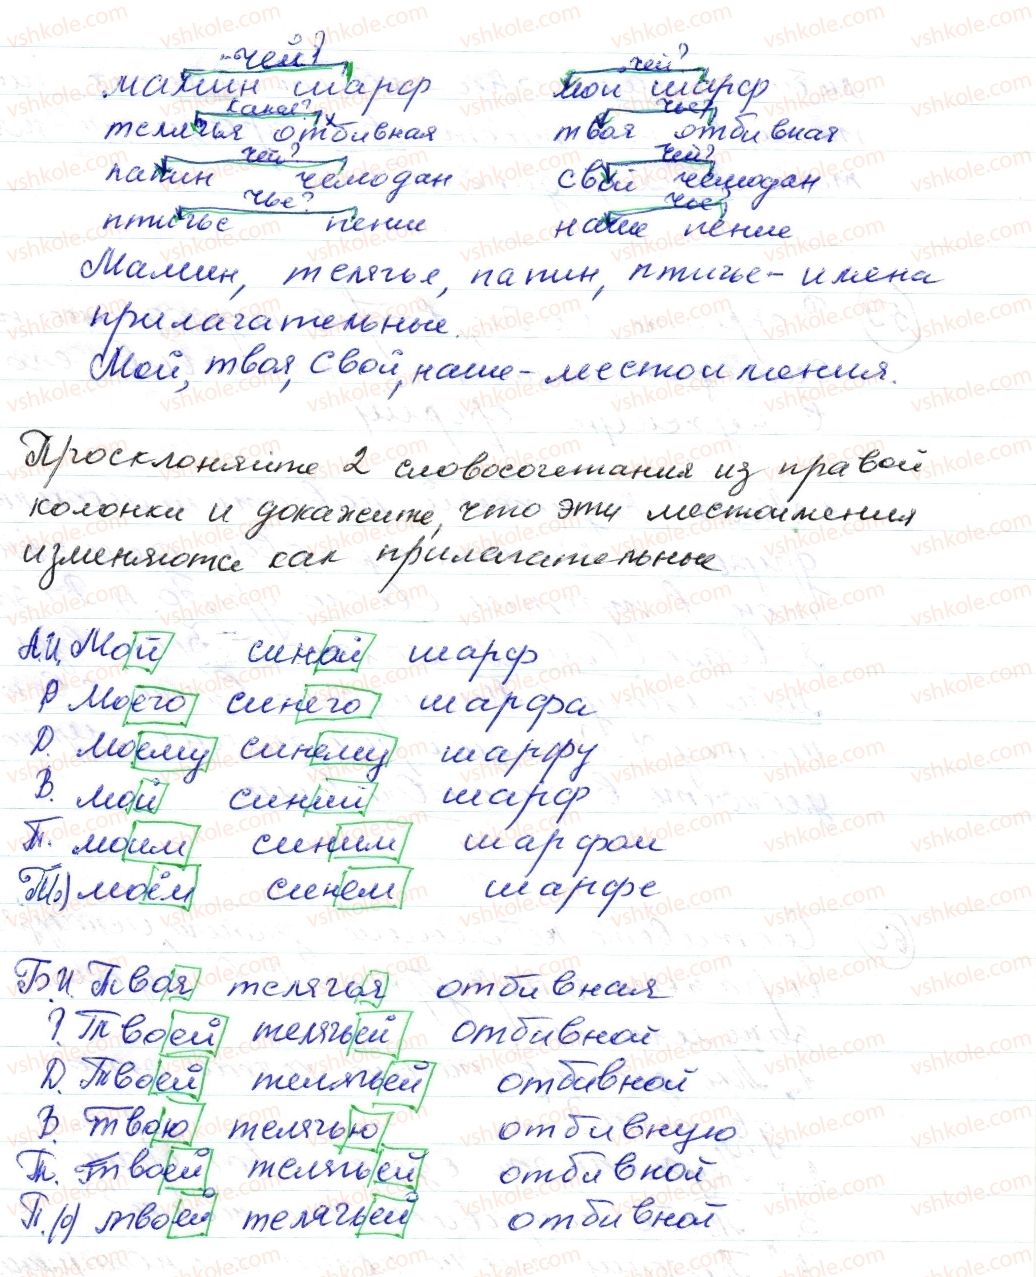 чей? чей?
мамин шарф мой шарф
какая? чья?
телячья отбивная твоя отбивная
чей? чей?
папин чемодан свой чемодан
чье? чье?
птичье пение наше пение
Мамин, телячье, папин, птичье - имена
прилагательные.
Мой, твоя, свой, наше - местоимения.
Просклоняйте 2 словосочетания из правой
колонки и докажите, что эти местоимения
изменяются как прилагательные
А.И. Мой синий шарф
Р Моего синего шарфа
Д. Моему синему шарфу
В. мой синий шарф
Т. моим синим шарфом
П(о) моём синем шарфе
Б.И. Твоя телячья отбивная
Р. Твоей телячьей отбивной
Д. Твоей телячьей отбивной
В. твою телячью отбивную
Т. твоей телячьей отбивной
П.(о) твоей телячьей отбивной